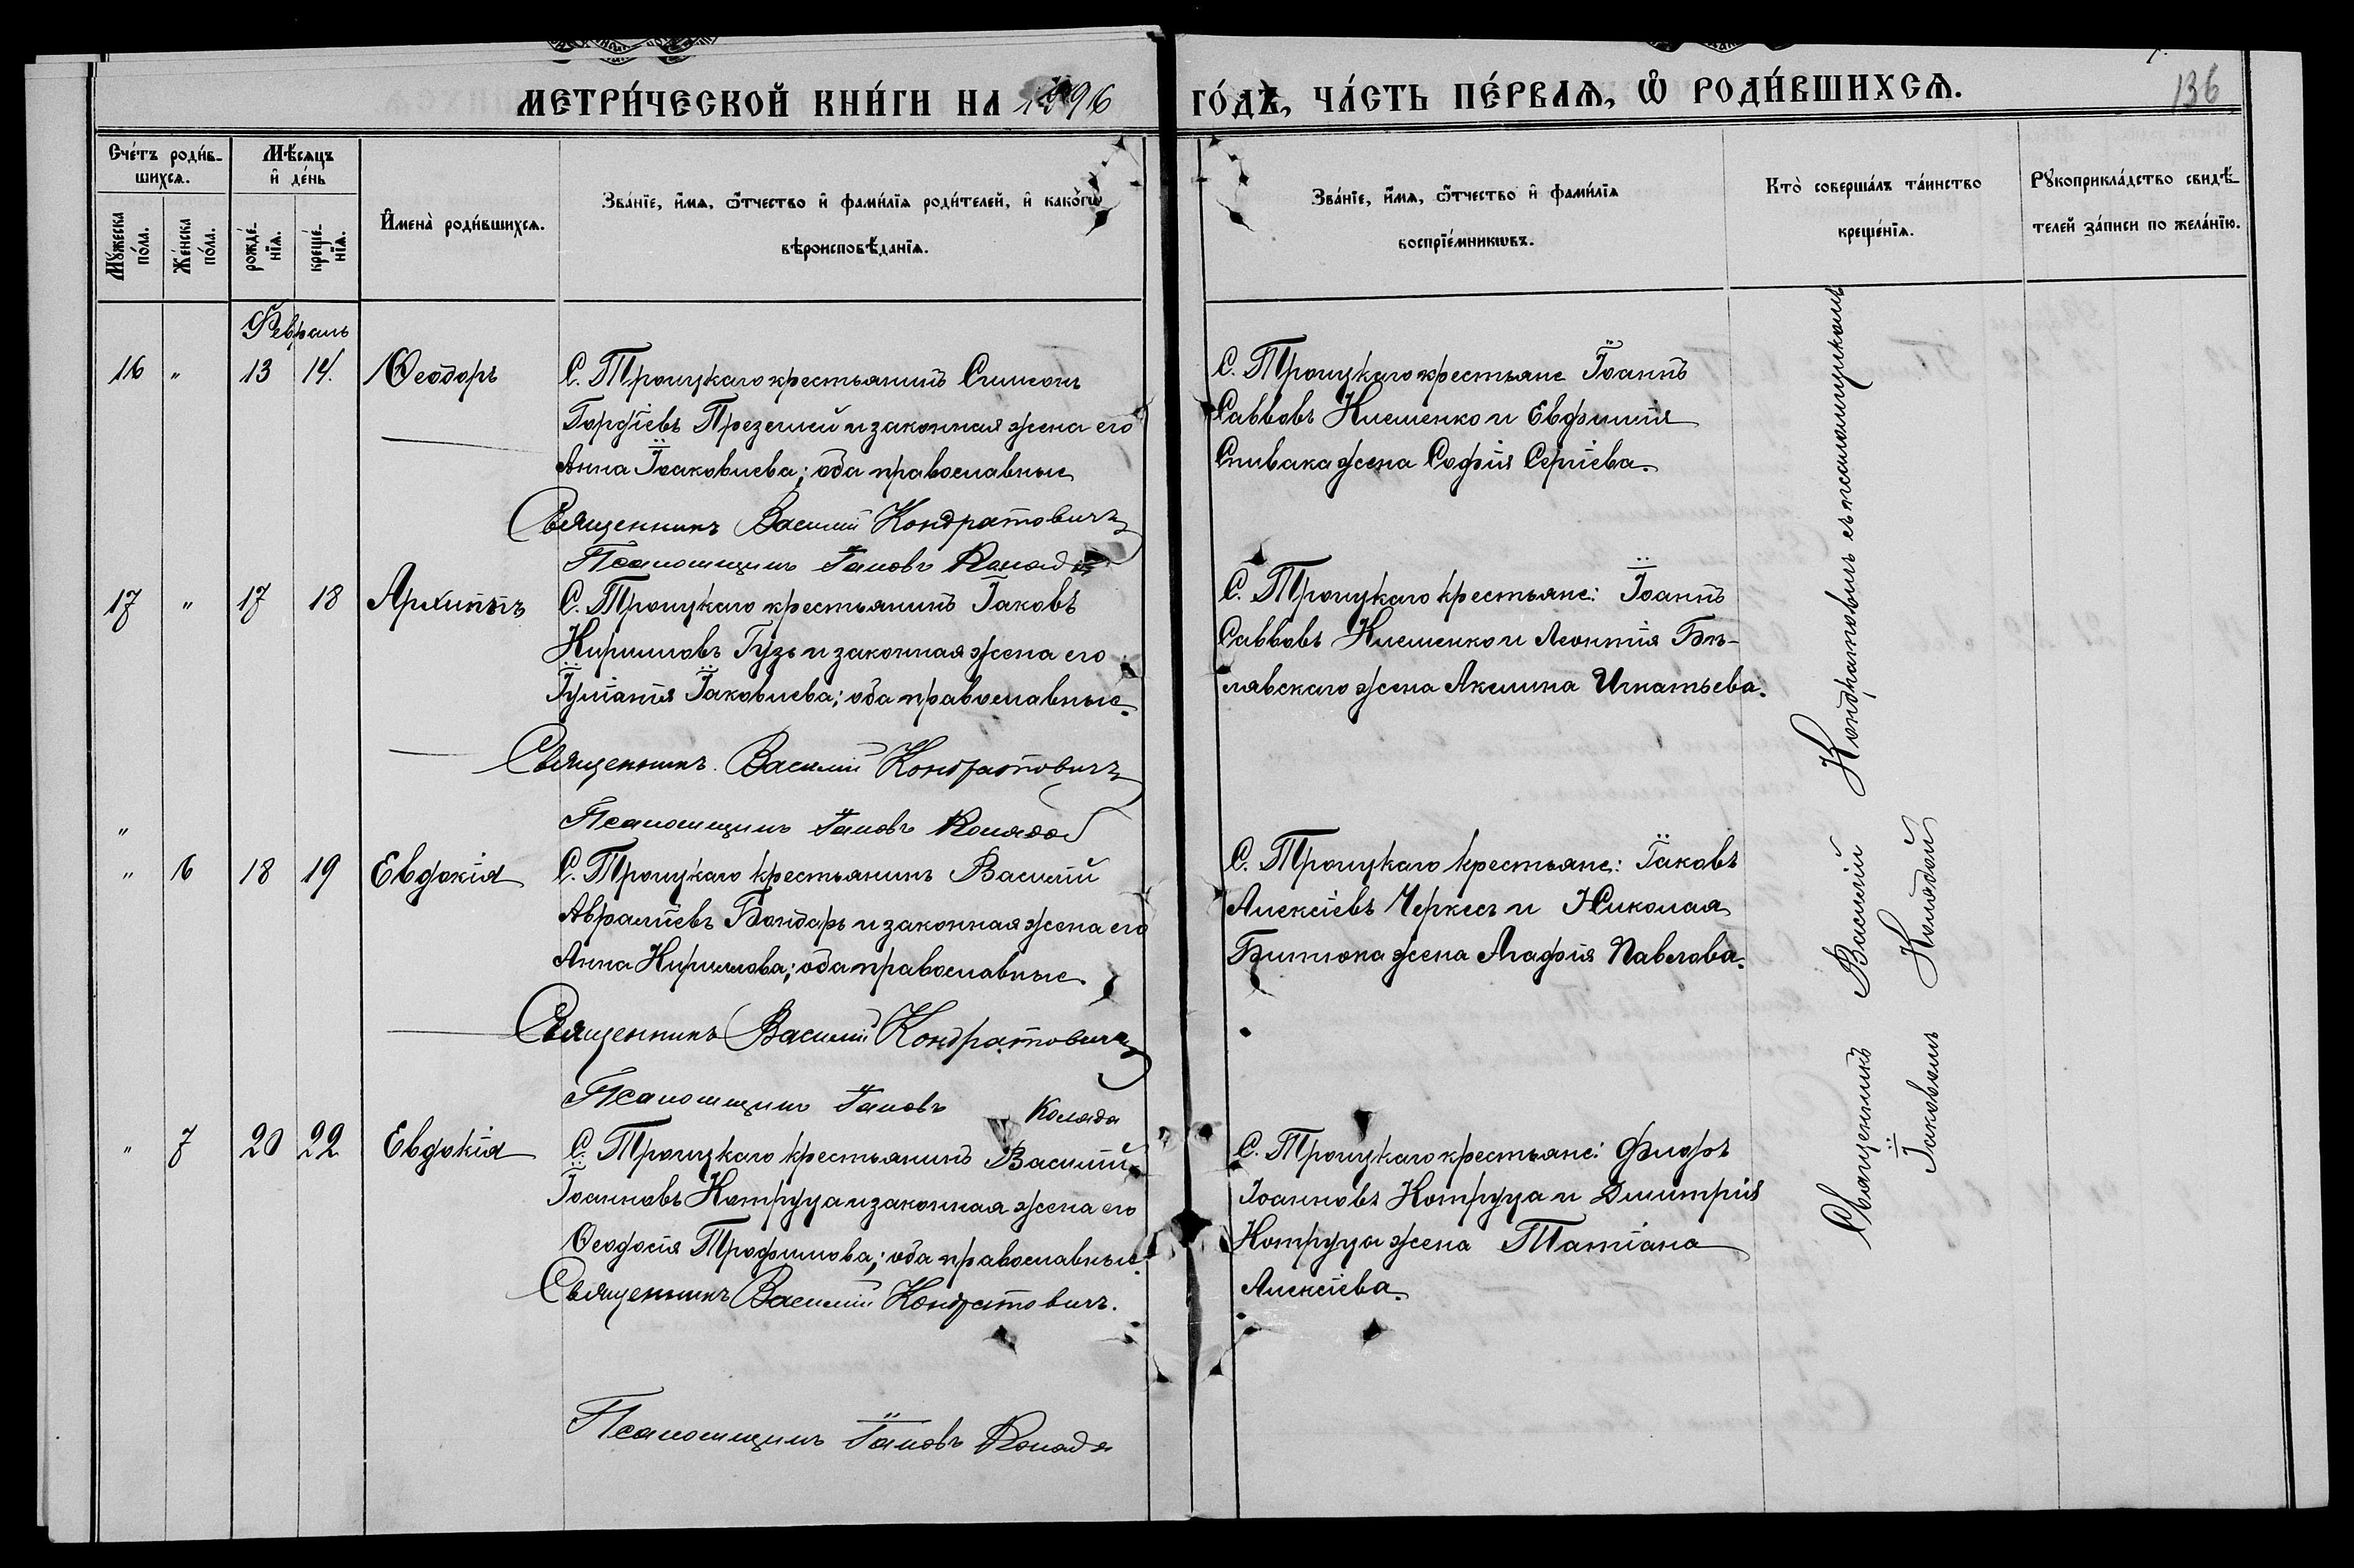 МЕТРИ́ЧЕСКОЙ КНИ́ГИ НА 1896 ГО́ДЪ, ЧА́СТЬ ПЕ́РВАѦ, Ѡ РОДИ́ВШИХСѦ.
136
Сче́тъ роди́в-
шихсѧ.
Мꙋ́жеска
по́ла.
Же́нска
по́ла.
Мѣ́сѧцъ
и҆ де́нь
рожде́-
нїѧ.
креще́-
нїѧ.
И҆мена̀ роди́вшихсѧ.
Зва́нїе, и҆́мѧ, ѻ҆́тчество и҆ фами́лїѧ роди́телей, и҆ како́гѡ
вѣроисповѣ́данїѧ.
Зва́нїе, и҆́мѧ, ѻ҆́тчество и҆ фами́лїѧ
воспрїе́мникѡвъ.
Кто̀ соверша́лъ та́инство
креще́нїѧ.
Рꙋкоприкла́дство свидѣ́-
телей за́писи по жела́нїю.
Февраль
16 " 13 14. Ѳеодоръ
С. Троицкаго крестьянинъ Симеонъ
Гордіевъ Презенлей и законная жена его
Анна Іоаковлева; оба православные
Священникъ Василій Кондратовичъ
Псаломщикъ Іаковъ Коляда
С. Троицкаго крестьяне Іоаннъ
Саввовъ Клешенко и Евфимія
Спивака жена Софія Сергіева.
17 " 17 18 Архиппъ
С. Троицкаго крестьянинъ Іаковъ
Кирилловъ Гузь и законная жена его
Іуліанія Іаковлева; оба православные.
Священникъ Василій Кондратовичъ
Псаломщикъ Іаковъ Коляда
С. Троицкаго крестьяне: Іоаннъ
Саввовъ Клешенко и Леонтія Бѣ-
лявскаго жена Акилина Игнатьева.
"
" 6 18 19 Евдокія
С. Троицкаго крестьянинъ Василій
Авраміевъ Бондарь и законная жена его
Анна Кириллова; оба православные
Священникъ Василій Кондратовичъ
Псаломщикъ Іаковъ Коляда
С. Троицкаго крестьяне: Іаковъ
Алексіевъ Черкесъ и Николая
Битюка жена Агафія Павлова.
" 7 20 22 Евдокія
С. Троицкаго крестьянинъ Василій
Іоанновъ Котруца и законная жена его
Ѳеодосія Трофимова; оба православные.
Священникъ Василій Кондратовичъ.
Псаломщикъ Іаковъ Коляда
С. Троицкаго крестьяне: Флоръ
Іоанновъ Котруца и Димитрія
Котруца жена Татіана
Алексіева.
Священникъ Василій Кондратовичъ съ псаломщикомъ
Іаковомъ Колядой